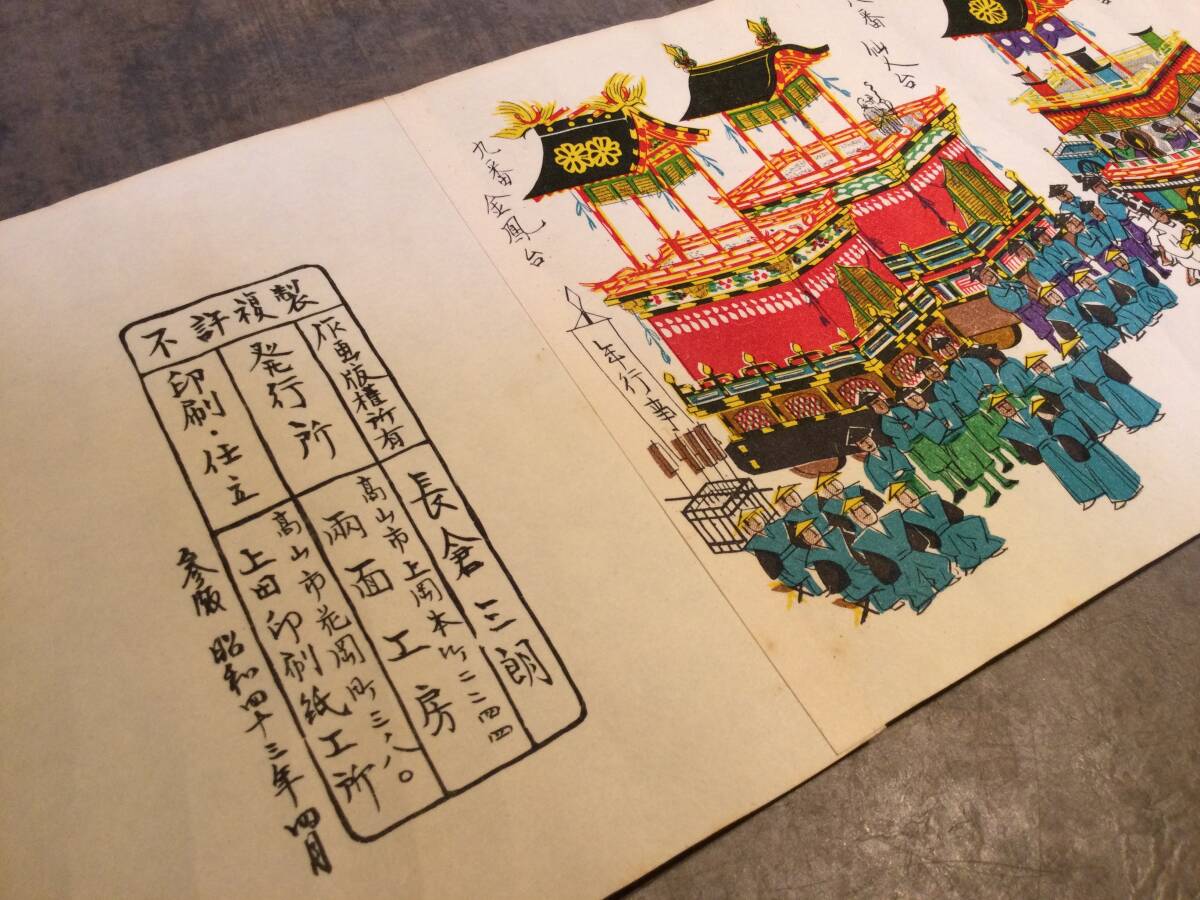 八番 仙人台
九番 金鳳台
年行事
不許複製
原画版權所有
長倉三朗
発行所
高山市上岡本町二二四四
兩面工房
印刷・仕立
高山市花岡町
上田印刷紙工所
参版 昭和四十三年四月